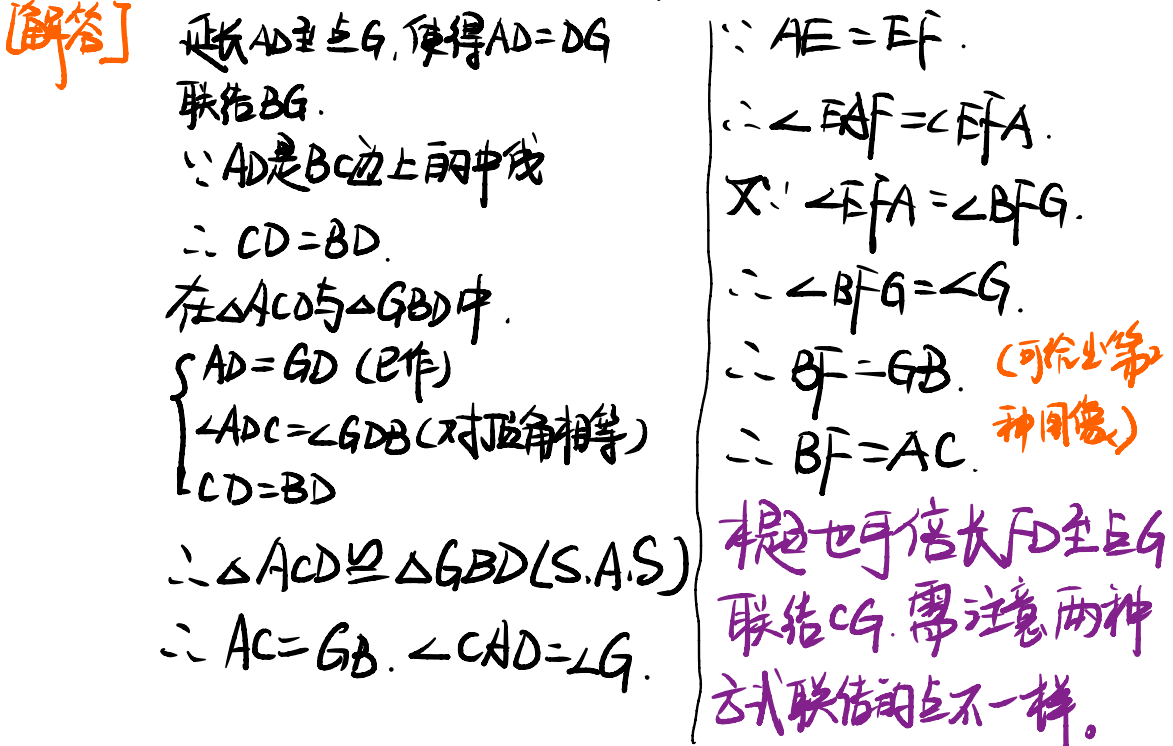 [解答]
延长AD至点G,使得AD=DG
联结BG.
∵AD是BC边上的中线
∴ CD=BD.
在△ACD与△GBD中.
AD=GD (已作)
∠ADC=∠GDB(对顶角相等)
CD=BD
∴△ACD≌△GBD(S.A.S)
∴ AC=GB. ∠CAD=∠G.
∵ AE=EF.
∴∠EAF=∠EFA.
又∵ ∠EFA=∠BFG.
∴∠BFG=∠G.
∴ BF=GB.
(可给出第2
种图像)
∴ BF=AC.
本题也可倍长FD至点G
联结CG.需注意两种
方式联结的点不一样。